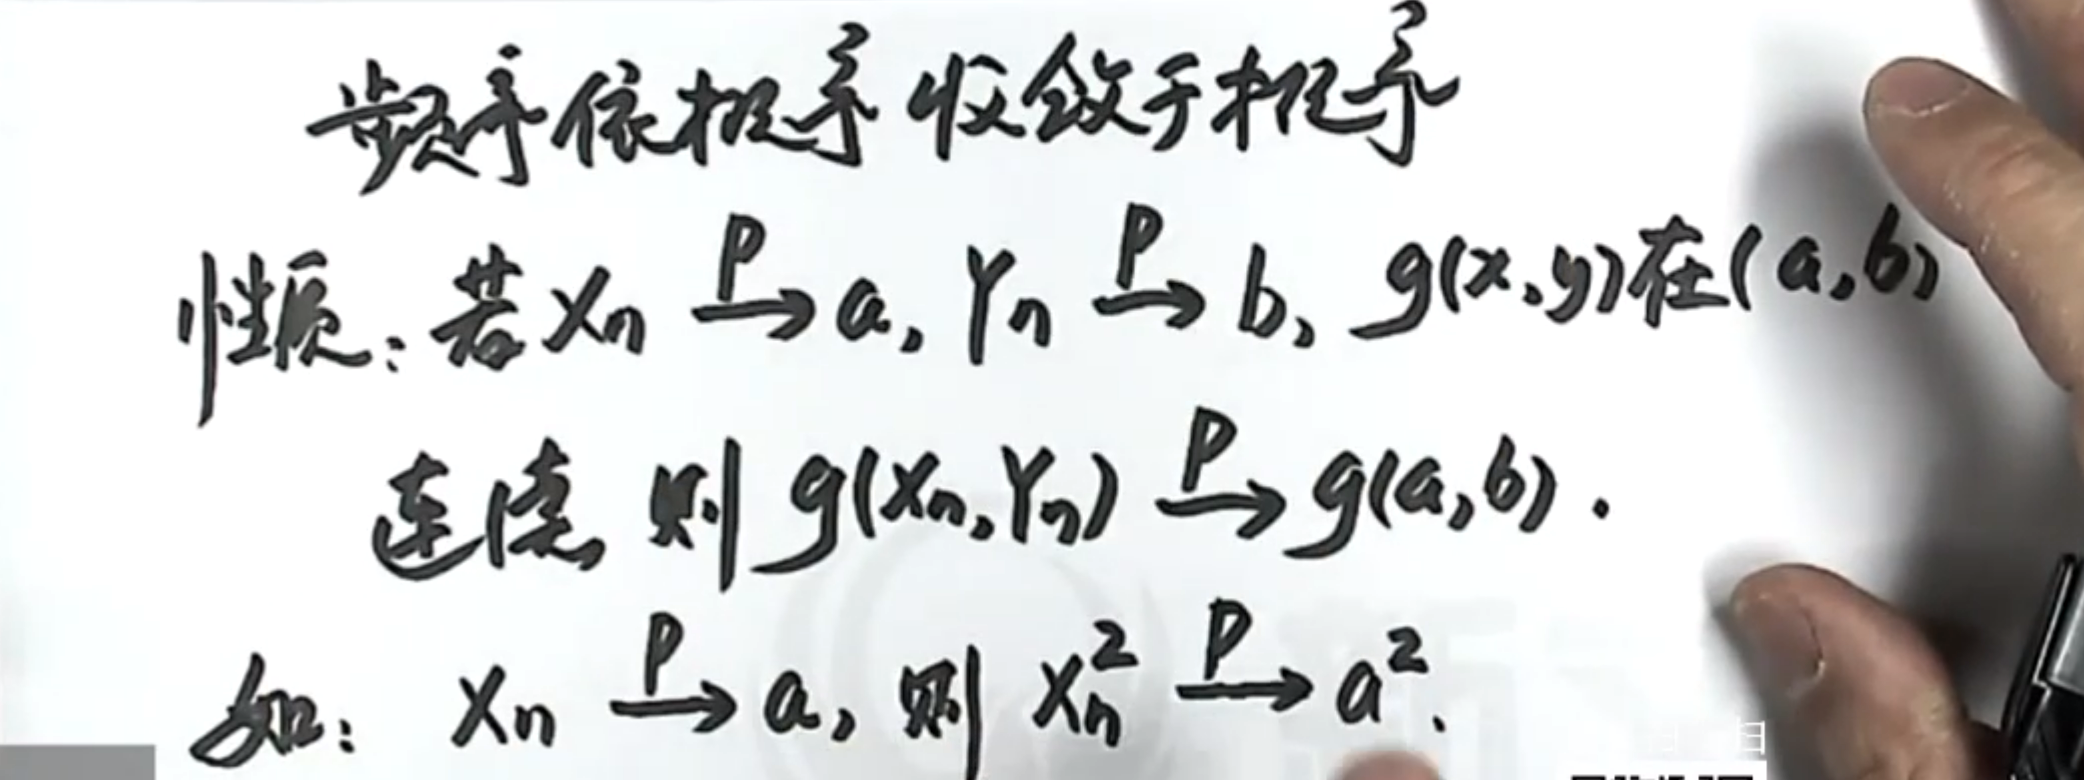 频率依概率收敛于概率
性质:若 Xn P→ a, Yn P→ b, g(x,y)在(a,b)
连续, 则 g(Xn,Yn) P→ g(a,b).
如: Xn P→ a, 则 Xn² P→ a².